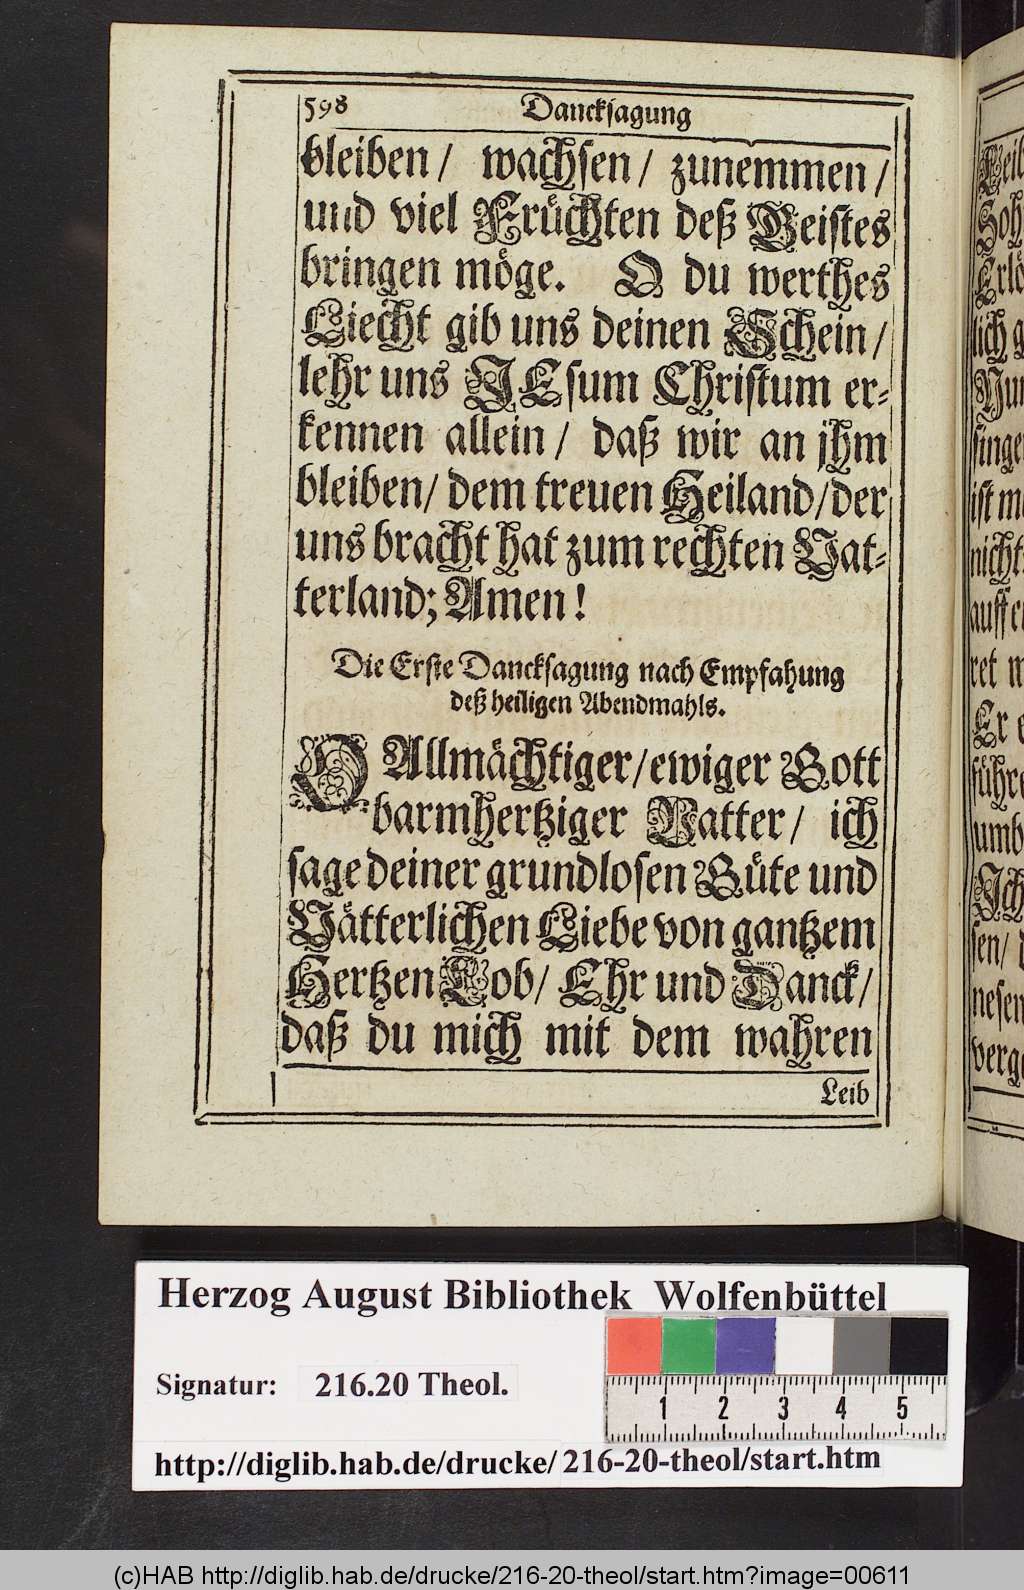 598 Dancksagung
bleiben / wachsen / zunemmen /
und viel Früchten deß Geistes
bringen möge. O du werthes
Liecht gib uns deinen Schein /
lehr uns JEsum Christum er-
kennen allein / daß wir an jhm
bleiben / dem treuen Heiland / der
uns bracht hat zum rechten Vat-
terland; Amen!
Die Erste Dancksagung nach Empfahung
deß heiligen Abendmahls.
O Allmächtiger / ewiger Gott
barmhertziger Vatter / ich
sage deiner grundlosen Güte und
Vätterlichen Liebe von gantzem
Hertzen Lob / Ehr und Danck /
daß du mich mit dem wahren
Leib
lich
ist
nichts
auff
ret
Er
umb
Jch
Herzog August Bibliothek Wolfenbüttel
Signatur: 216.20 Theol.
1 2 3 4 5
http://diglib.hab.de/drucke/ 216-20-theol/start.htm
(c)HAB http://diglib.hab.de/drucke/216-20-theol/start.htm?image=00611